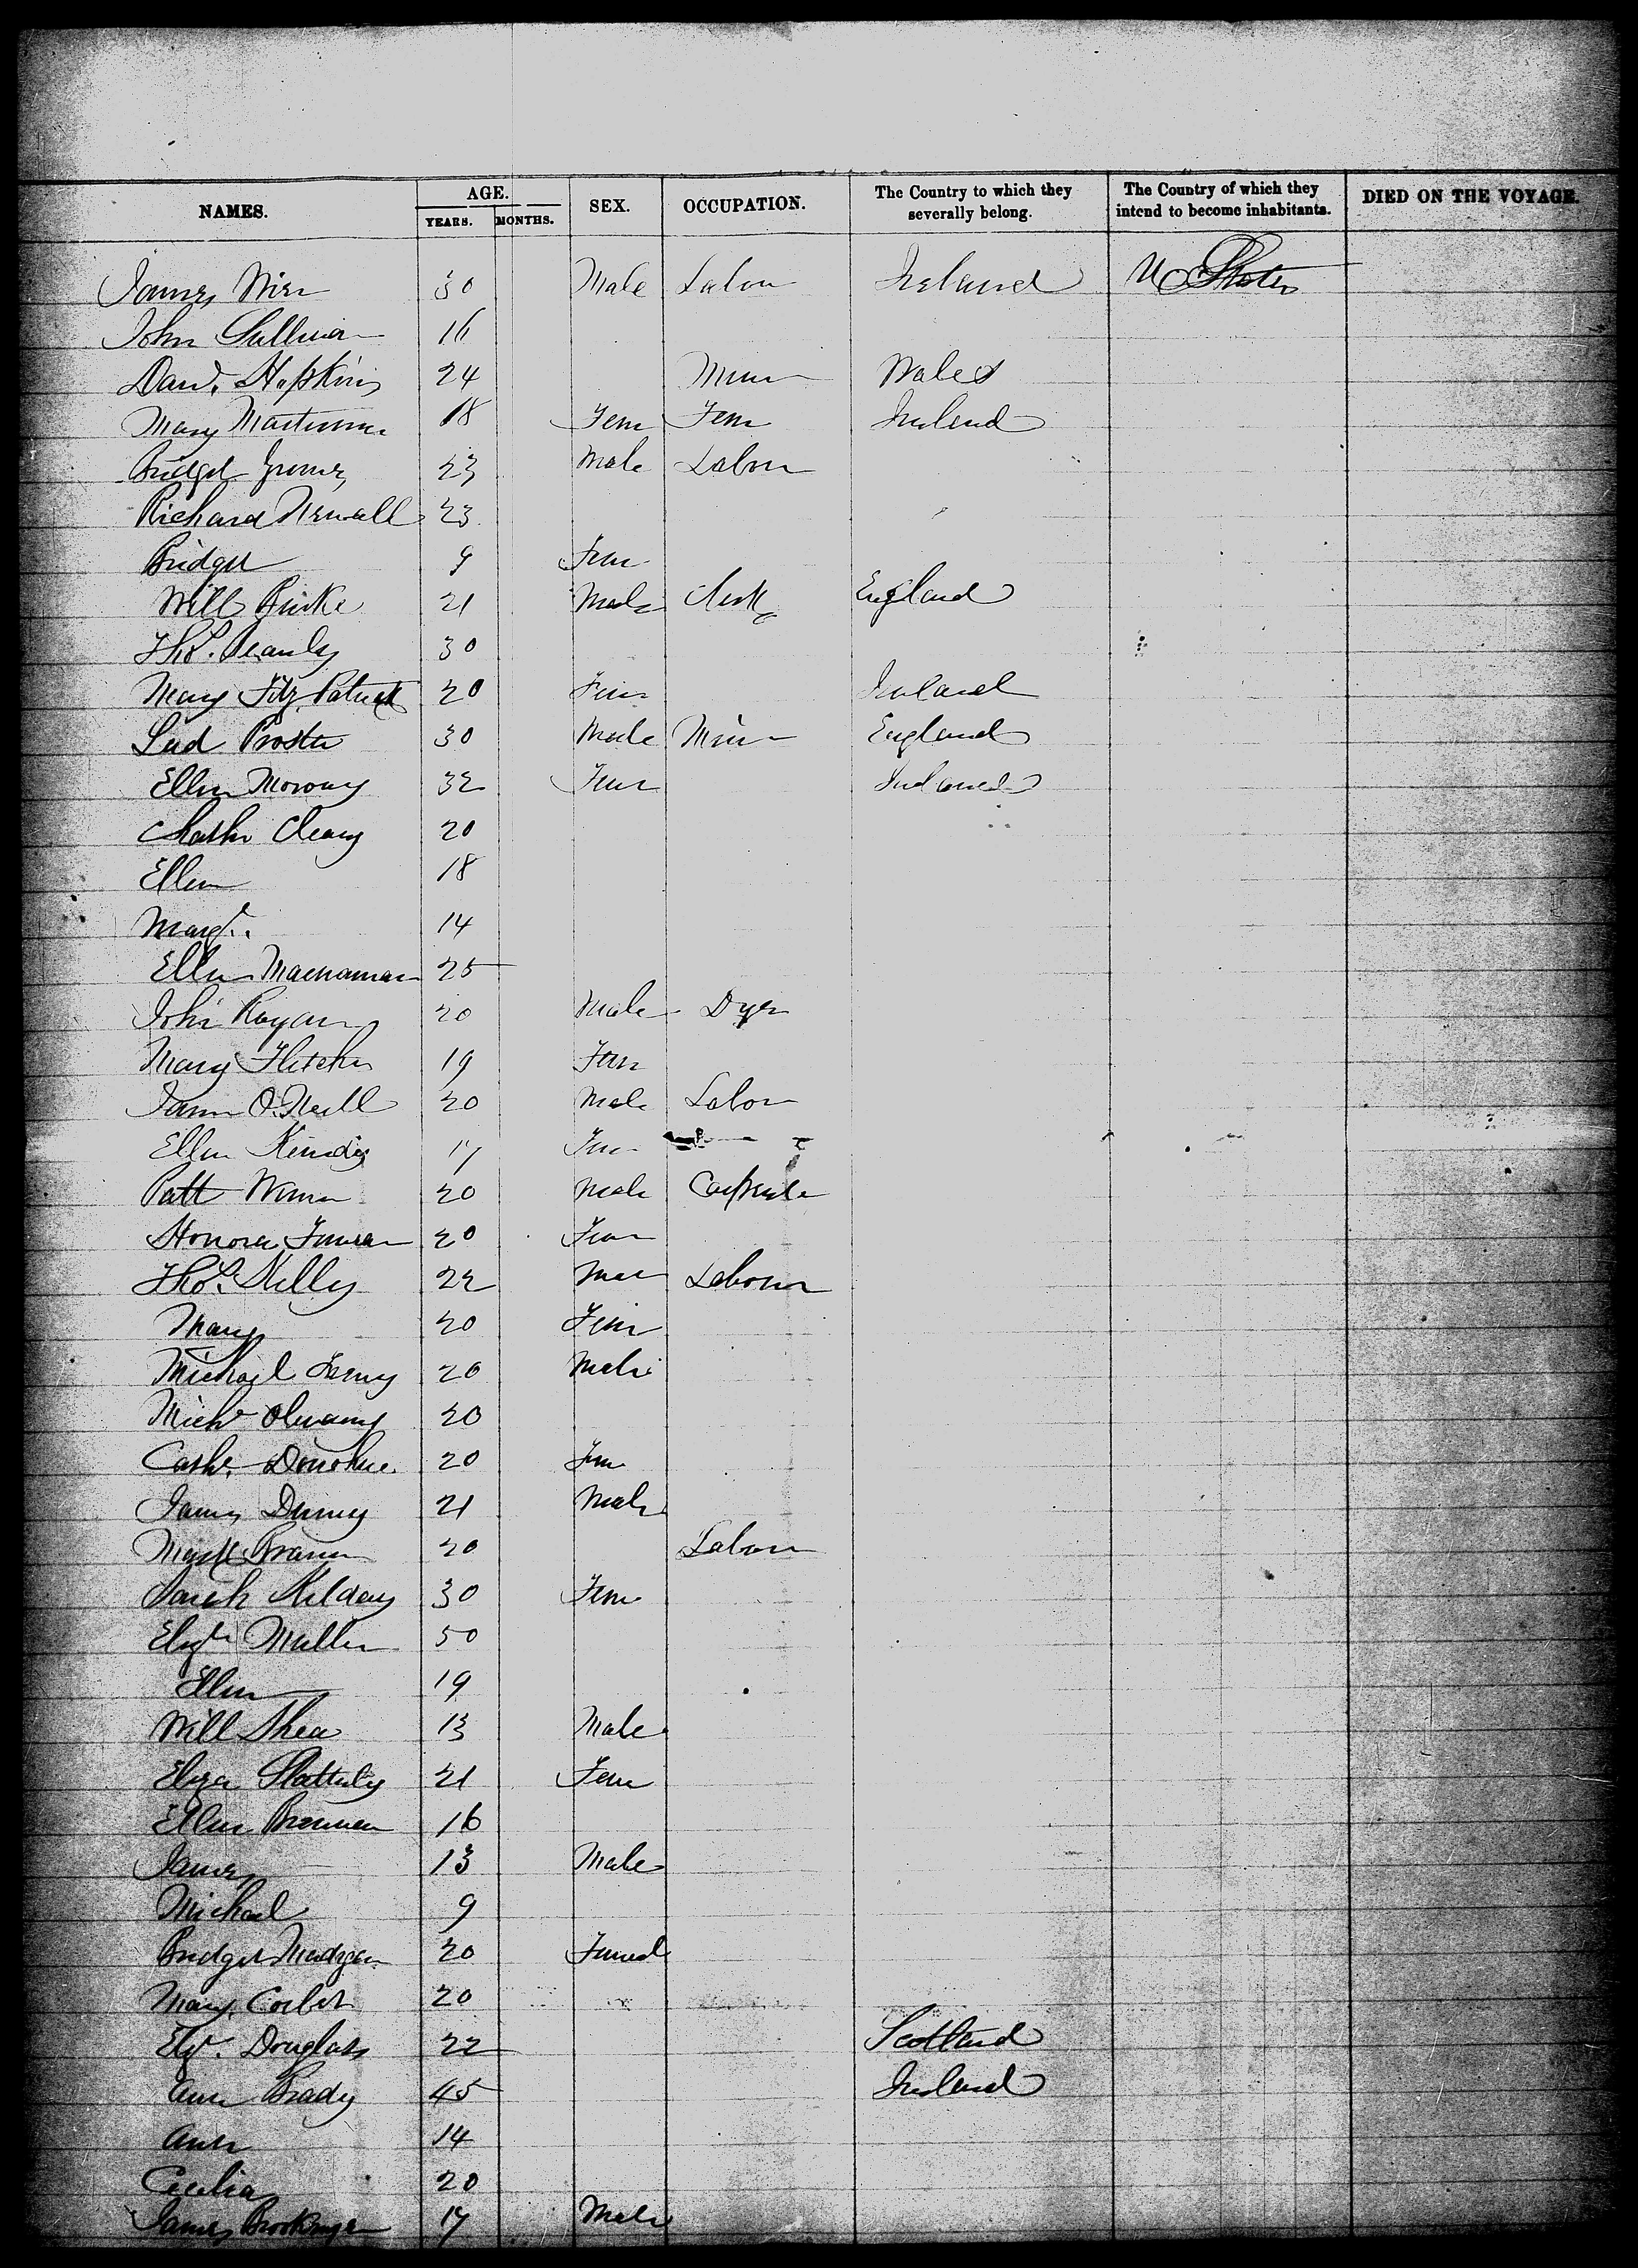 NAMES. AGE. YEARS. MONTHS. SEX. OCCUPATION. The Country to which they severally belong. The Country of which they intend to become inhabitants. DIED ON THE VOYAGE.
James 30 Male Labour Ireland U States
John Sullivan 16
Davd. Hopkins 24 Miner Wales
Mary 18 Fem Fem Ireland
Bridget 23 Male Labour
Richard Newall 23
Bridget 9 Fem
Will Burke 21 Male Clerk England
Thos. 30
Mary Fitz Patrick 20 Fem Ireland
30 Male Miner England
Ellen Morony 32 Fem Ireland
Cleary 20
Ellen 18
Margt. 14
Ellen Macnamar 25
John Ryan 20 Male Dyer
Mary Fletcher 19 Fem
James O'Neill 20 Male Labor
Ellen 17 Fem
Patt 20 Male Carpente
Honora 20 Fem
Thos. Kelly 22 Male Labour
Mary 20 Fem
Michael 20 Male
Michl 20
Cathe. Donohue 20 Fem
James 21 Male
20 Labour
Sarah Kilday 30 Fem
Elizth 50
Ellen 19
Will Shea 13 Male
Eliza Slattely 21 Fem
Ellen Brennan 16
James 13 Male
Michael 9
Bridget Madgan 20 Femal
Mary Corbet 20
Elizt. Douglass 22 Scotland
Ann Brady 45 Ireland
Ann 14
Cecilia 20
James 17 Male